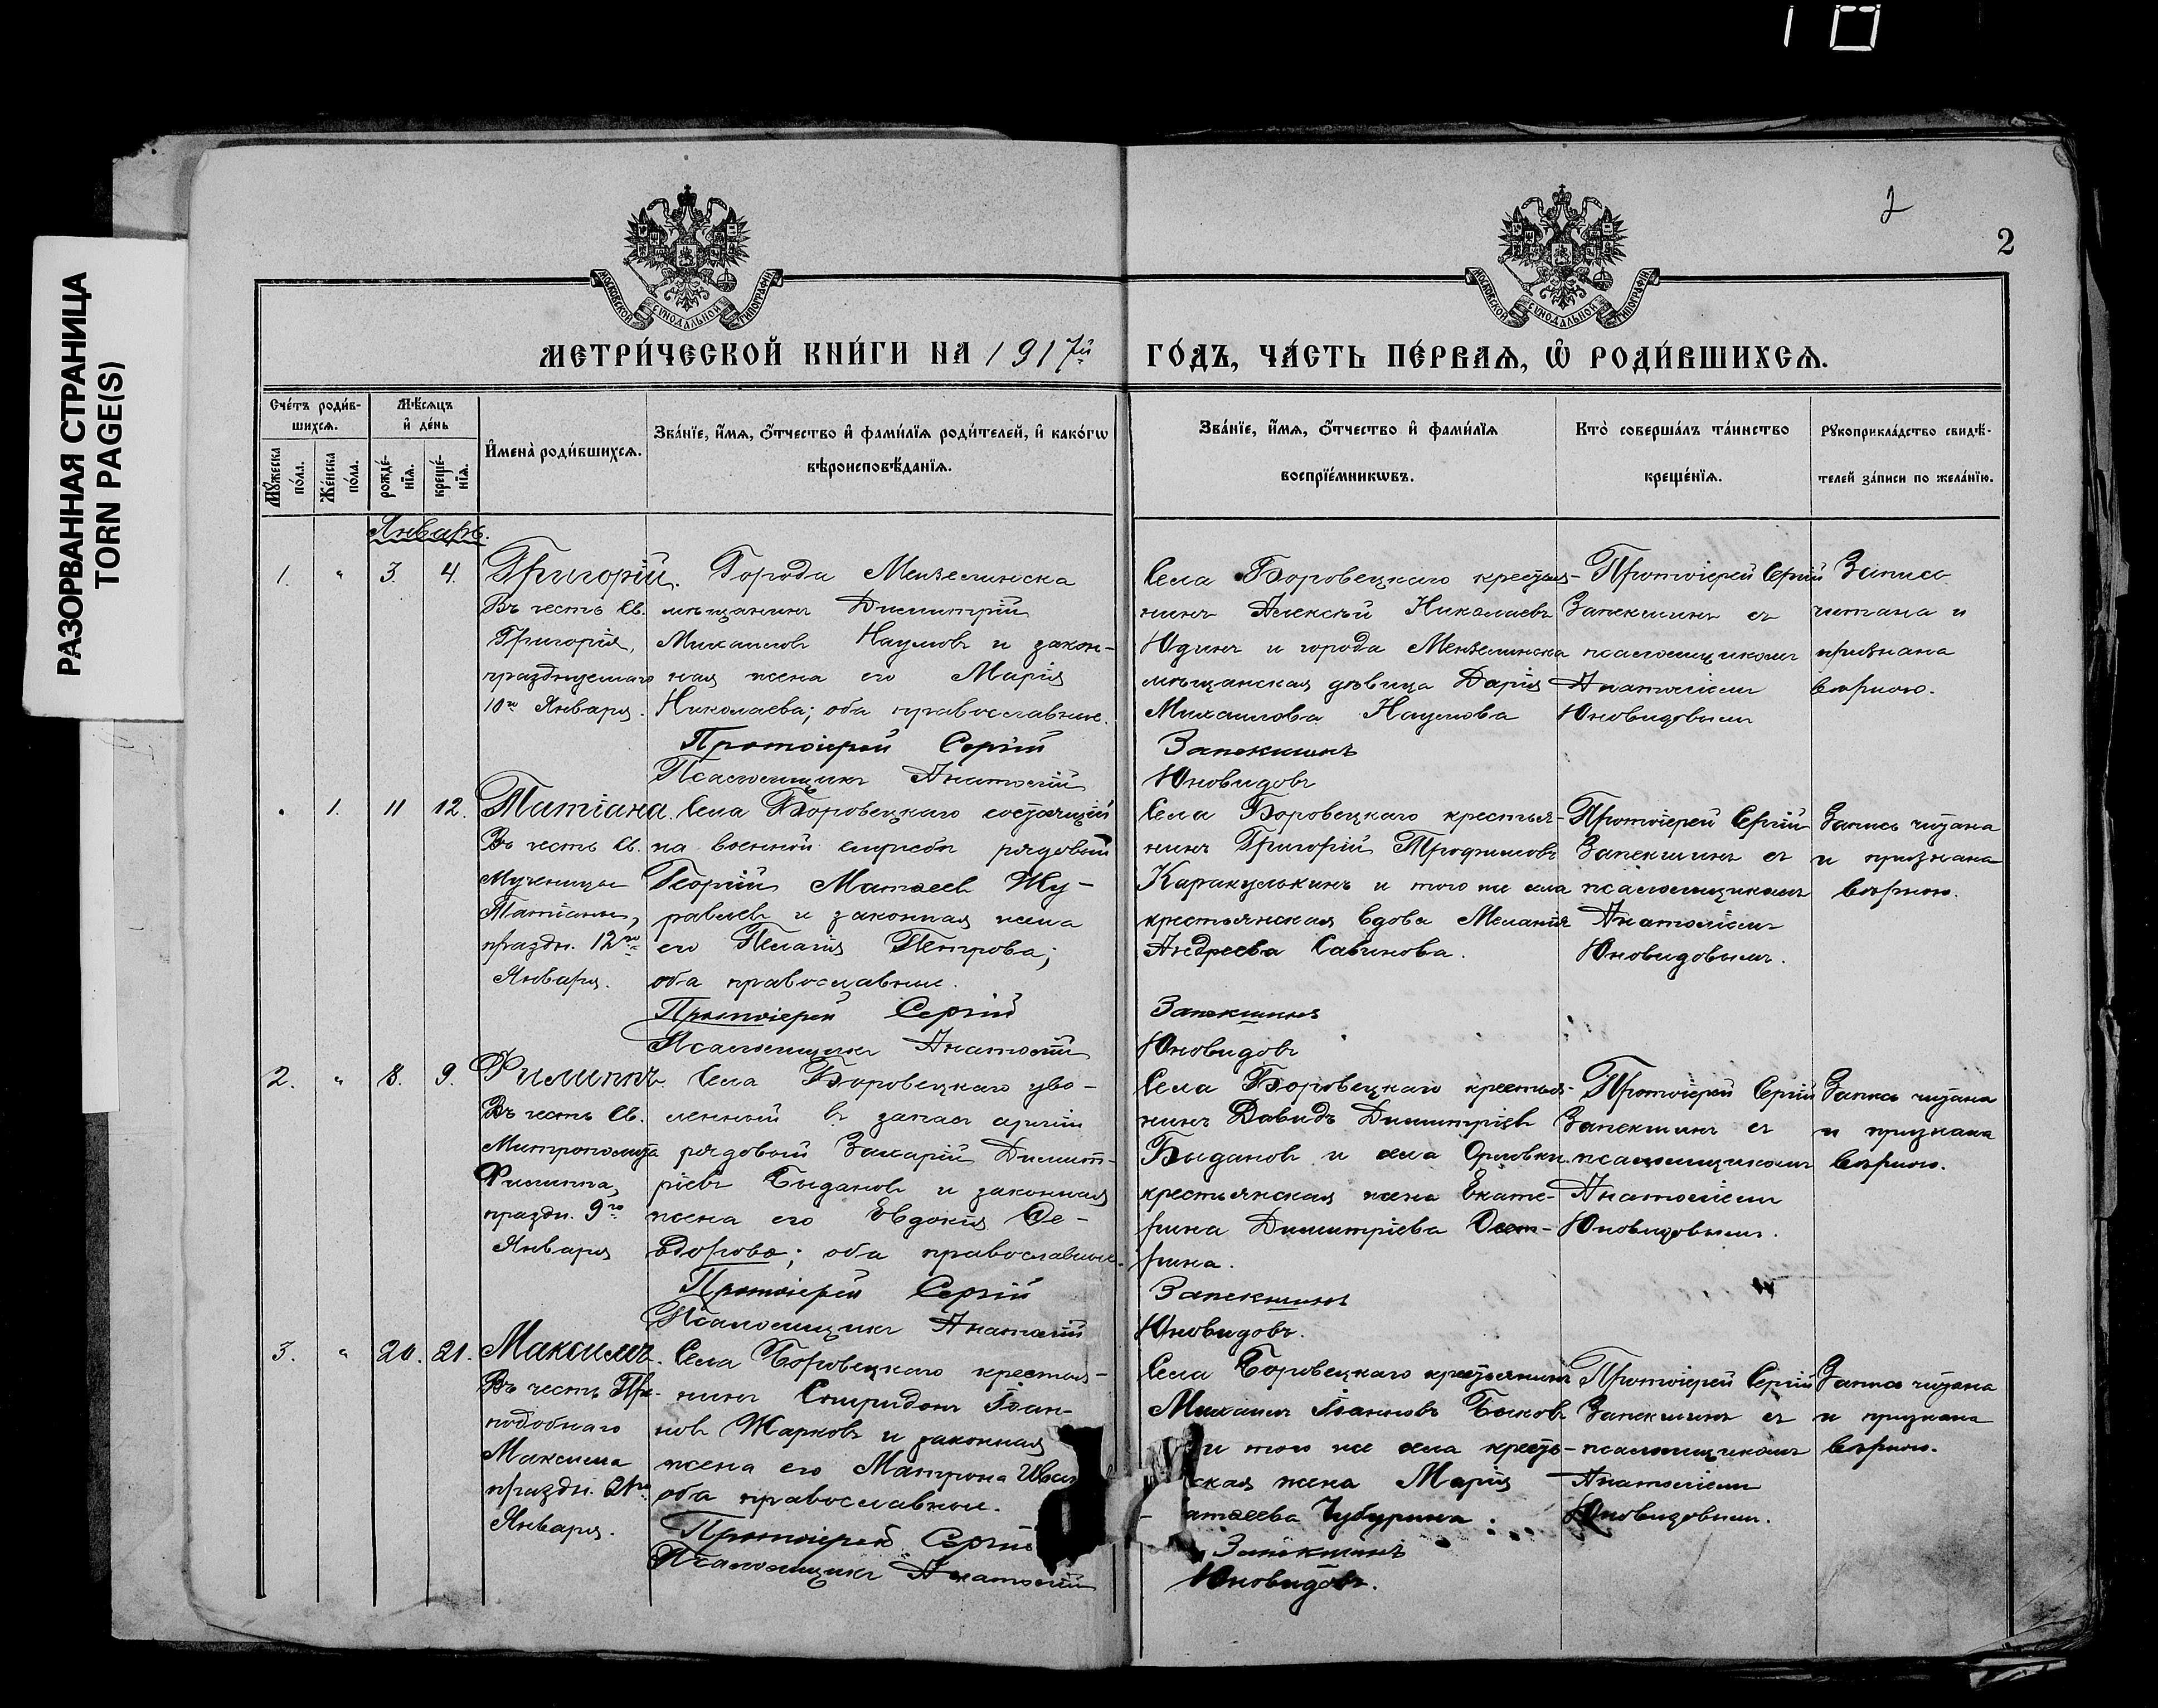 РАЗОРВАННАЯ СТРАНИЦА
TORN PAGE(S)
2
2
МОСКОВСКОЙ СѴНОДАЛЬНОЙ ТИПОГРАФІИ
МОСКОВСКОЙ СѴНОДАЛЬНОЙ ТИПОГРАФІИ
МЕТРИ́ЧЕСКОЙ КНИ́ГИ НА 1917й ГО́ДЪ, ЧА́СТЬ ПЕ́РВАЯ, Ѡ҆ РОДИ́ВШИХСЯ.
Сче́тъ роди́в-
шихся.
Мꙋ́жеска
по́ла.
Же́нска
по́ла.
Мѣ́сяцъ
и҆ де́нь
рожде́-
нїя.
креще́-
нїя.
И҆мена̀ роди́вшихся.
Зва́нїе, и҆́мя, ѻ҆́тчество и҆ фами́лїя роди́телей, и҆ како́гѡ
вѣроисповѣ́данїя.
Зва́нїе, и҆́мя, ѻ҆́тчество и҆ фами́лїя
воспрїе́мникѡвъ.
Кто̀ соверша́лъ та́инство
креще́нїя.
Рꙋкоприкла́дство свидѣ́-
телей за́писи по жела́нїю.
Январь.
1. " 3. 4. Григорій.
Въ честь св.
Григорія,
празднуемаго
10го Января.
Города Мензелинска
мѣщанинъ Димитрій
Михаиловъ Наумовъ и закон-
ная жена его Марія
Николаева; оба православные.
Протоіерей Сергій
Псаломщикъ Анатолій
Села Боровецкаго крестья-
нинъ Алексѣй Николаевъ
Юдинъ и города Мензелинска
мѣщанская дѣвица Дарія
Михаилова Наумова
Запекшинъ
Юновидовъ
Протоіерей Сергій
Запекшинъ съ
псаломщикомъ
Анатоліемъ
Юновидовымъ
Запись
читана и
признана
вѣрною.
" 1. 11 12. Татіана.
Въ честь св.
Мученицы
Татіаны,
праздн. 12го
Января.
Села Боровецкаго состоящій
на военной службѣ рядовый
Георгій Матѳеевъ Жу-
равлевъ и законная жена
его Пелагія Петрова;
оба православные.
Протоіерей Сергій
Псаломщикъ Анатолій
Села Боровецкаго крестья-
нинъ Григорій Трофимовъ
Каракулькинъ и того же села
крестьянская вдова Меланія
Андреева Савинова.
Запекшинъ
Юновидовъ
Протоіерей Сергій
Запекшинъ съ
псаломщикомъ
Анатоліемъ
Юновидовымъ.
Запись читана
и признана
вѣрною.
2. " 8. 9. Филиппъ.
Въ честь св.
Митрополита
Филиппа,
праздн. 9го
Января
Села Боровецкаго уво-
ленный въ запасъ арміи
рядовый Захарій Димит-
ріевъ Быдановъ и законная
жена его Евдокія Ѳе-
одорова; оба православные.
Протоіерей Сергій
Псаломщикъ Анатолій
Села Боровецкаго крестья-
нинъ Давидъ Димитріевъ
Быдановъ и села Орловки
крестьянская жена Екате-
рина Димитріева Осет-
рина.
Запекшинъ
Юновидовъ.
Протоіерей Сергій
Запекшинъ съ
псаломщикомъ
Анатоліемъ
Юновидовымъ.
Запись читана
и признана
вѣрною.
3. " 20. 21. Максимъ.
Въ честь Пре-
подобнаго
Максима
праздн. 21го
Января.
Села Боровецкаго крестья-
нинъ Спиридонъ Іоан-
новъ Жарковъ и законная
жена его Матрона
оба православные.
Протоіерей Сергій
Псаломщикъ Анатолій
Села Боровецкаго крестьянинъ
Михаилъ Іоанновъ Быковъ
и того же села кресть-
ская жена Марія
атѳеева Чубурина.
Запекшинъ
Юновидовъ.
Протоіерей Сергій
Запекшинъ съ
псаломщикомъ
Анатоліемъ
Юновидовымъ.
Запись читана
и признана
вѣрною.